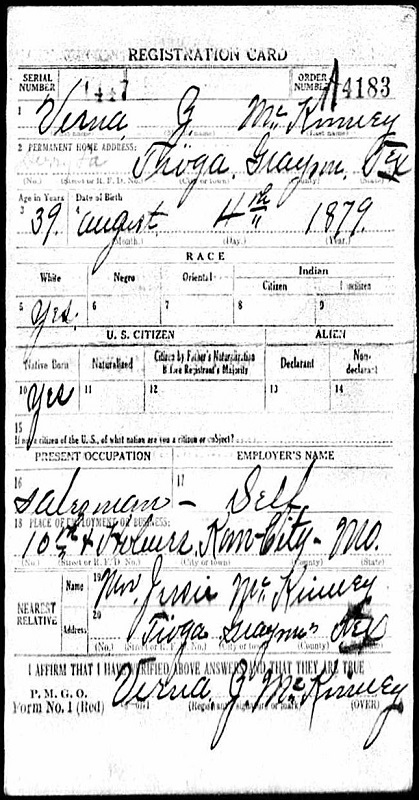 REGISTRATION CARD
SERIAL NUMBER 1447 ORDER NUMBER A4183
1 Verna Z. McKinney
(First name) (Middle name) (Last name)
2 PERMANENT HOME ADDRESS:
Tioga, Grayson, Tex
(No.) (Street or R. F. D. No.) (City or town) (County) (State)
Age in Years Date of Birth
3 39. 4 August 4th 1879.
(Month.) (Day.) (Year.)
RACE
White Negro Oriental Indian
Citizen Noncitizen
5 Yes. 6 7 8 9
U. S. CITIZEN ALIEN
Native Born Naturalized Citizen by Father's Naturalization Before Registrant's Majority Declarant Non-declarant
10 Yes 11 12 13 14
15
If not a citizen of the U. S., of what nation are you a citizen or subject?
PRESENT OCCUPATION EMPLOYER'S NAME
16 Salesman - 17 Self
18 PLACE OF EMPLOYMENT OR BUSINESS:
10th & Holmes, Kan-City- Mo.
(No.) (Street or R. F. D. No.) (City or town) (County) (State)
NEAREST RELATIVE
Name 19 Mrs. Jessie McKinney
Address 20 Tioga Grayson Tex
(No.) (Street or R. F. D. No.) (City or town) (County) (State)
I AFFIRM THAT I HAVE VERIFIED ABOVE ANSWERS AND THAT THEY ARE TRUE
P. M. G. O.
Form No. 1 (Red) Verna Z McKinney
(Registrant's signature or mark) (OVER)